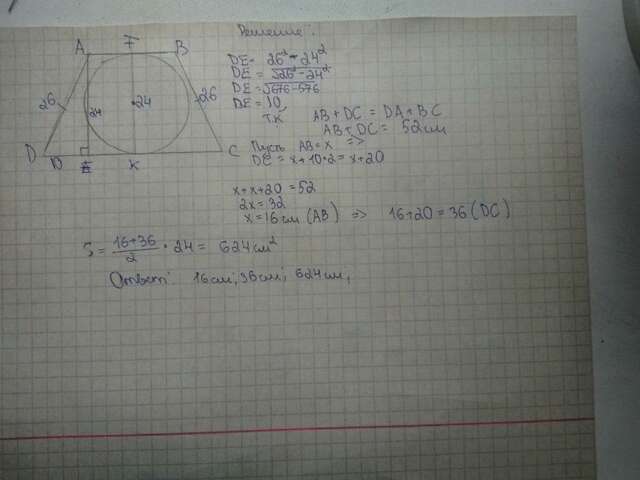 Решение:
A F B
26 24 24 26
D 10 E K C
DE = 26² - 24²
DE = √26² - 24²
DE = √676 - 576
DE = 10
т.к AB + DC = DA + BC
AB + DC = 52 см
Пусть AB = x =>
DC = x + 10·2 = x + 20
x + x + 20 = 52
2x = 32
x = 16 см (AB) => 16 + 20 = 36 (DC)
S = (16 + 36)/2 · 24 = 624 см²
Ответ: 16 см; 36 см; 624 см,